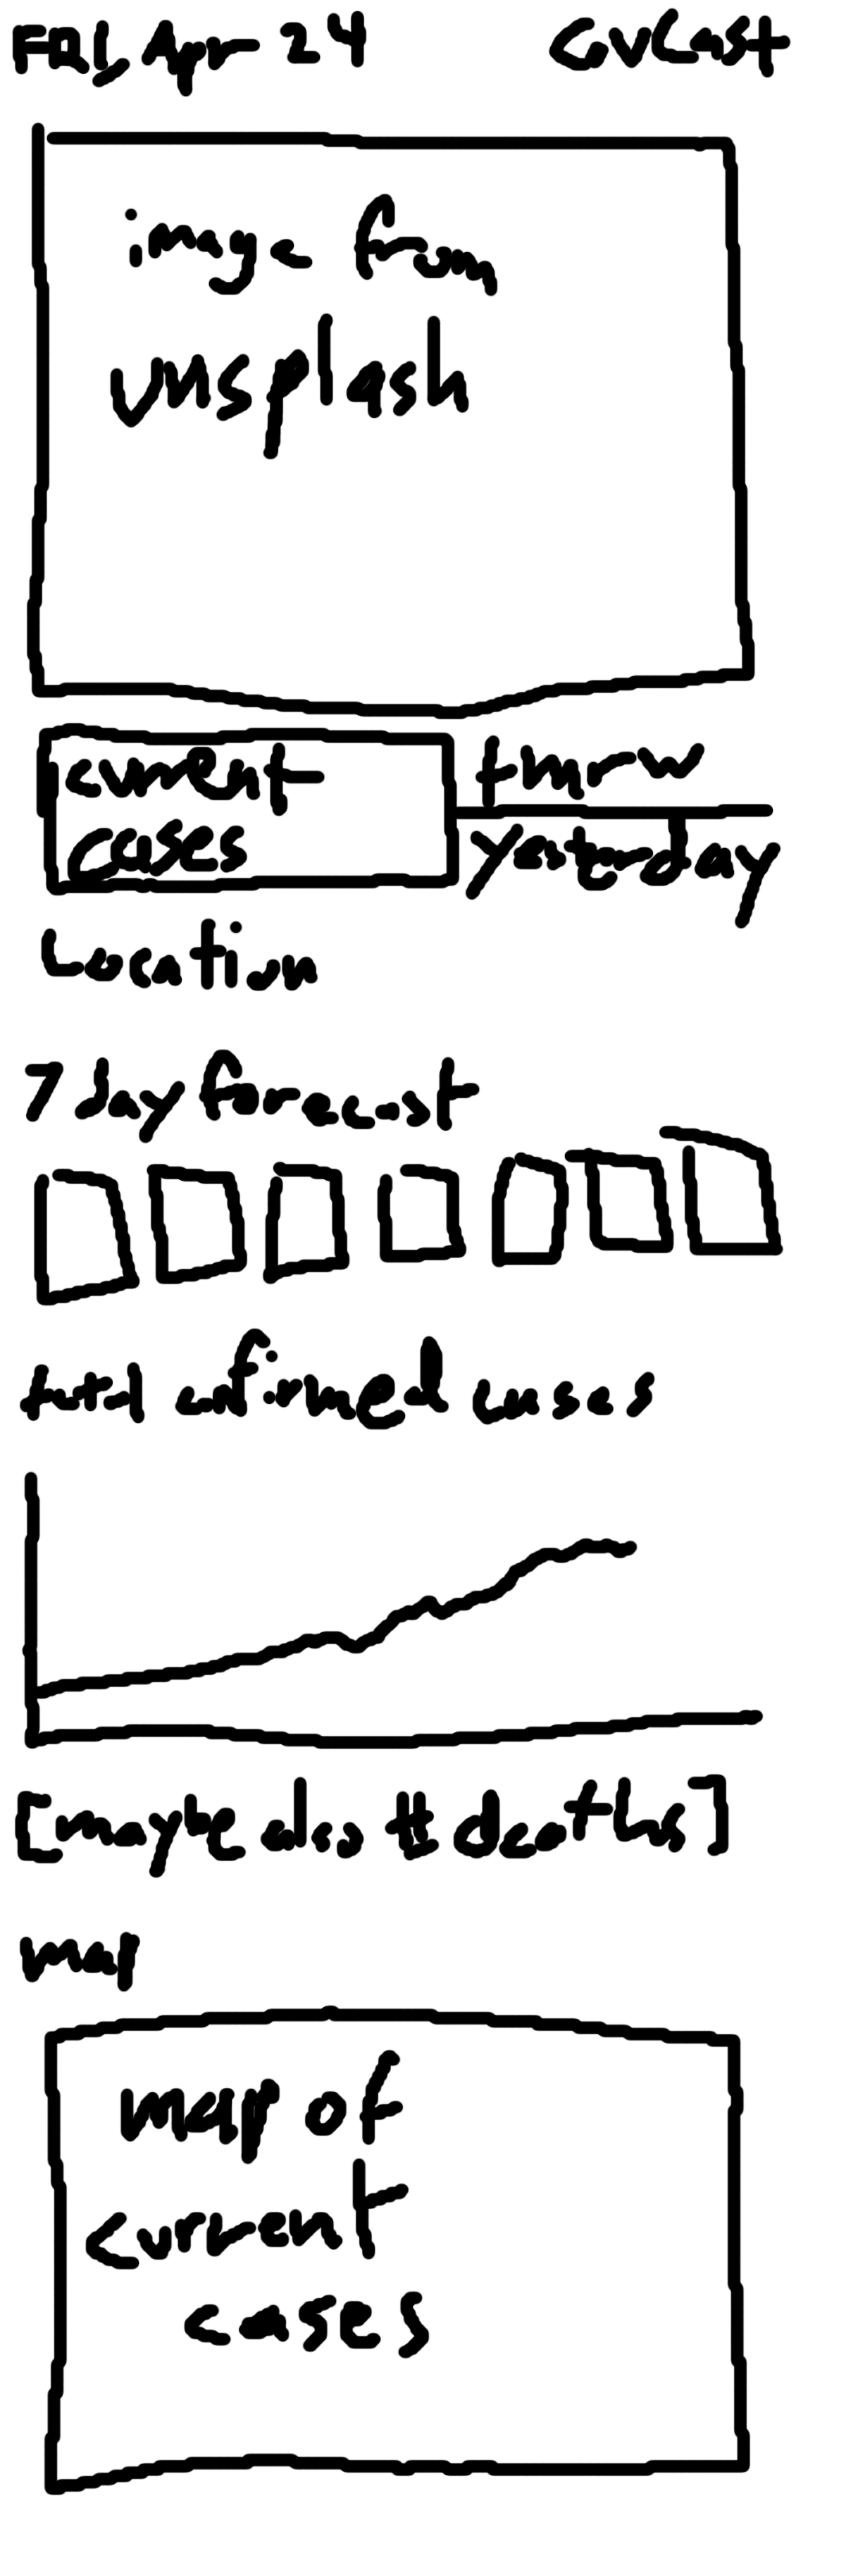 FRI, Apr 24 CvCast
image from
unsplash
current
cases
tmrw
yesterday
Location
7 day forecast
total confirmed cases
[maybe also # deaths]
map
map of
current
cases